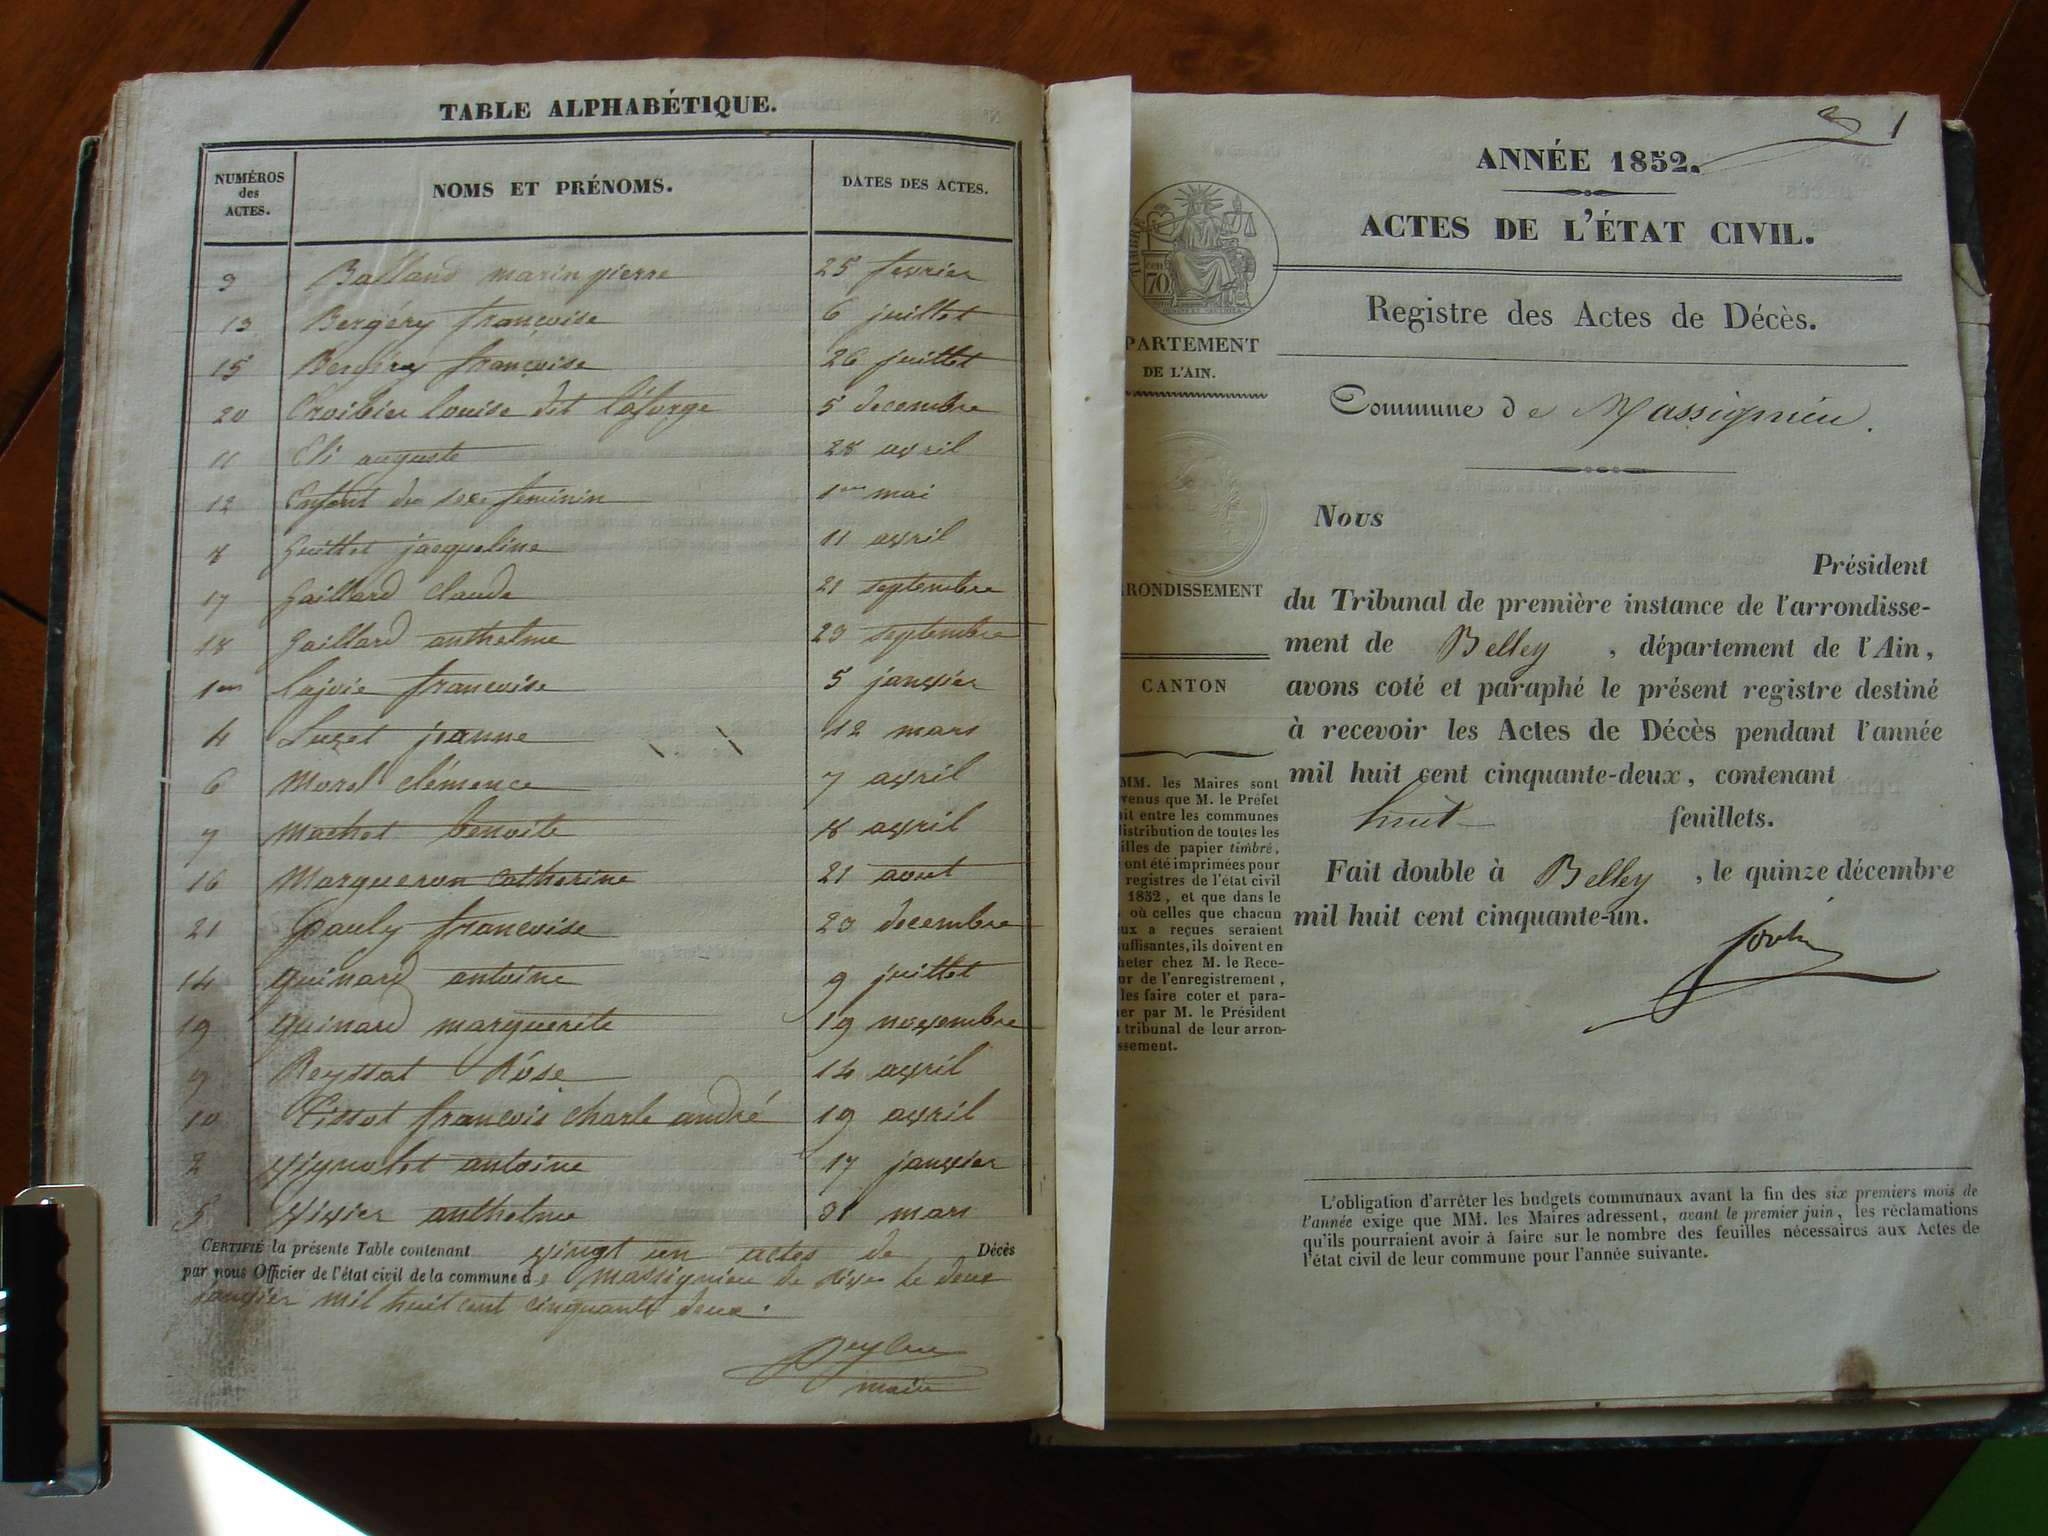 TABLE ALPHABÉTIQUE.
NUMÉROS des ACTES. NOMS ET PRÉNOMS. DATES DES ACTES.
3 Balland marin pierre 25 fevrier
13 Bergéry françoise 6 juillet
15 Bergéry françoise 26 juillet
20 Croibier louise dit laforge 5 decembre
11 Eli auguste 28 avril
12 Enfant de sexe feminin 1er mai
8 Guillet jacqueline 11 avril
17 Gaillard claude 21 septembre
18 Gaillard anthelme 23 septembre
1er Lajoie francoise 5 janvier
4 Luzet jeanne 12 mars
6 Morel clémence 7 avril
7 Machet benoite 8 avril
16 Margueron catherine 21 aout
21 Pauly francoise 23 decembre
14 Quinard antoine 9 juillet
19 Quinard marguerite 19 novembre
9 Reyssat Rose 14 avril
10 Tissot francois charle andré 19 avril
2 Vignolet antoine 17 janvier
5 Vivier anthelme 31 mars
CERTIFIÉ la présente Table contenant vingt un actes de Décès
par nous Officier de l'état civil de la commune de massignieu de rives le deux
janvier mil huit cent cinquante deux.
maire
1
ANNÉE 1852.
ACTES DE L'ÉTAT CIVIL.
TIMBRE
70
Registre des Actes de Décès.
PARTEMENT
DE L'AIN.
Commune de Massignieu.
Nous
Président
RONDISSEMENT
du Tribunal de première instance de l'arrondisse-
ment de Belley, département de l'Ain,
CANTON
avons coté et paraphé le présent registre destiné
à recevoir les Actes de Décès pendant l'année
mil huit cent cinquante-deux, contenant
huit feuillets.
Fait double à Belley, le quinze décembre
mil huit cent cinquante-un.
MM. les Maires sont
venus que M. le Préfet
it entre les communes
distribution de toutes les
illes de papier timbré,
ont été imprimées pour
registres de l'état civil
1852, et que dans le
où celles que chacun
ux a reçues seraient
uffisantes, ils doivent en
heter chez M. le Rece-
or de l'enregistrement,
les faire coter et para-
er par M. le Président
tribunal de leur arron-
ssement.
L'obligation d'arrêter les budgets communaux avant la fin des six premiers mois de
l'année exige que MM. les Maires adressent, avant le premier juin, les réclamations
qu'ils pourraient avoir à faire sur le nombre des feuilles nécessaires aux Actes de
l'état civil de leur commune pour l'année suivante.